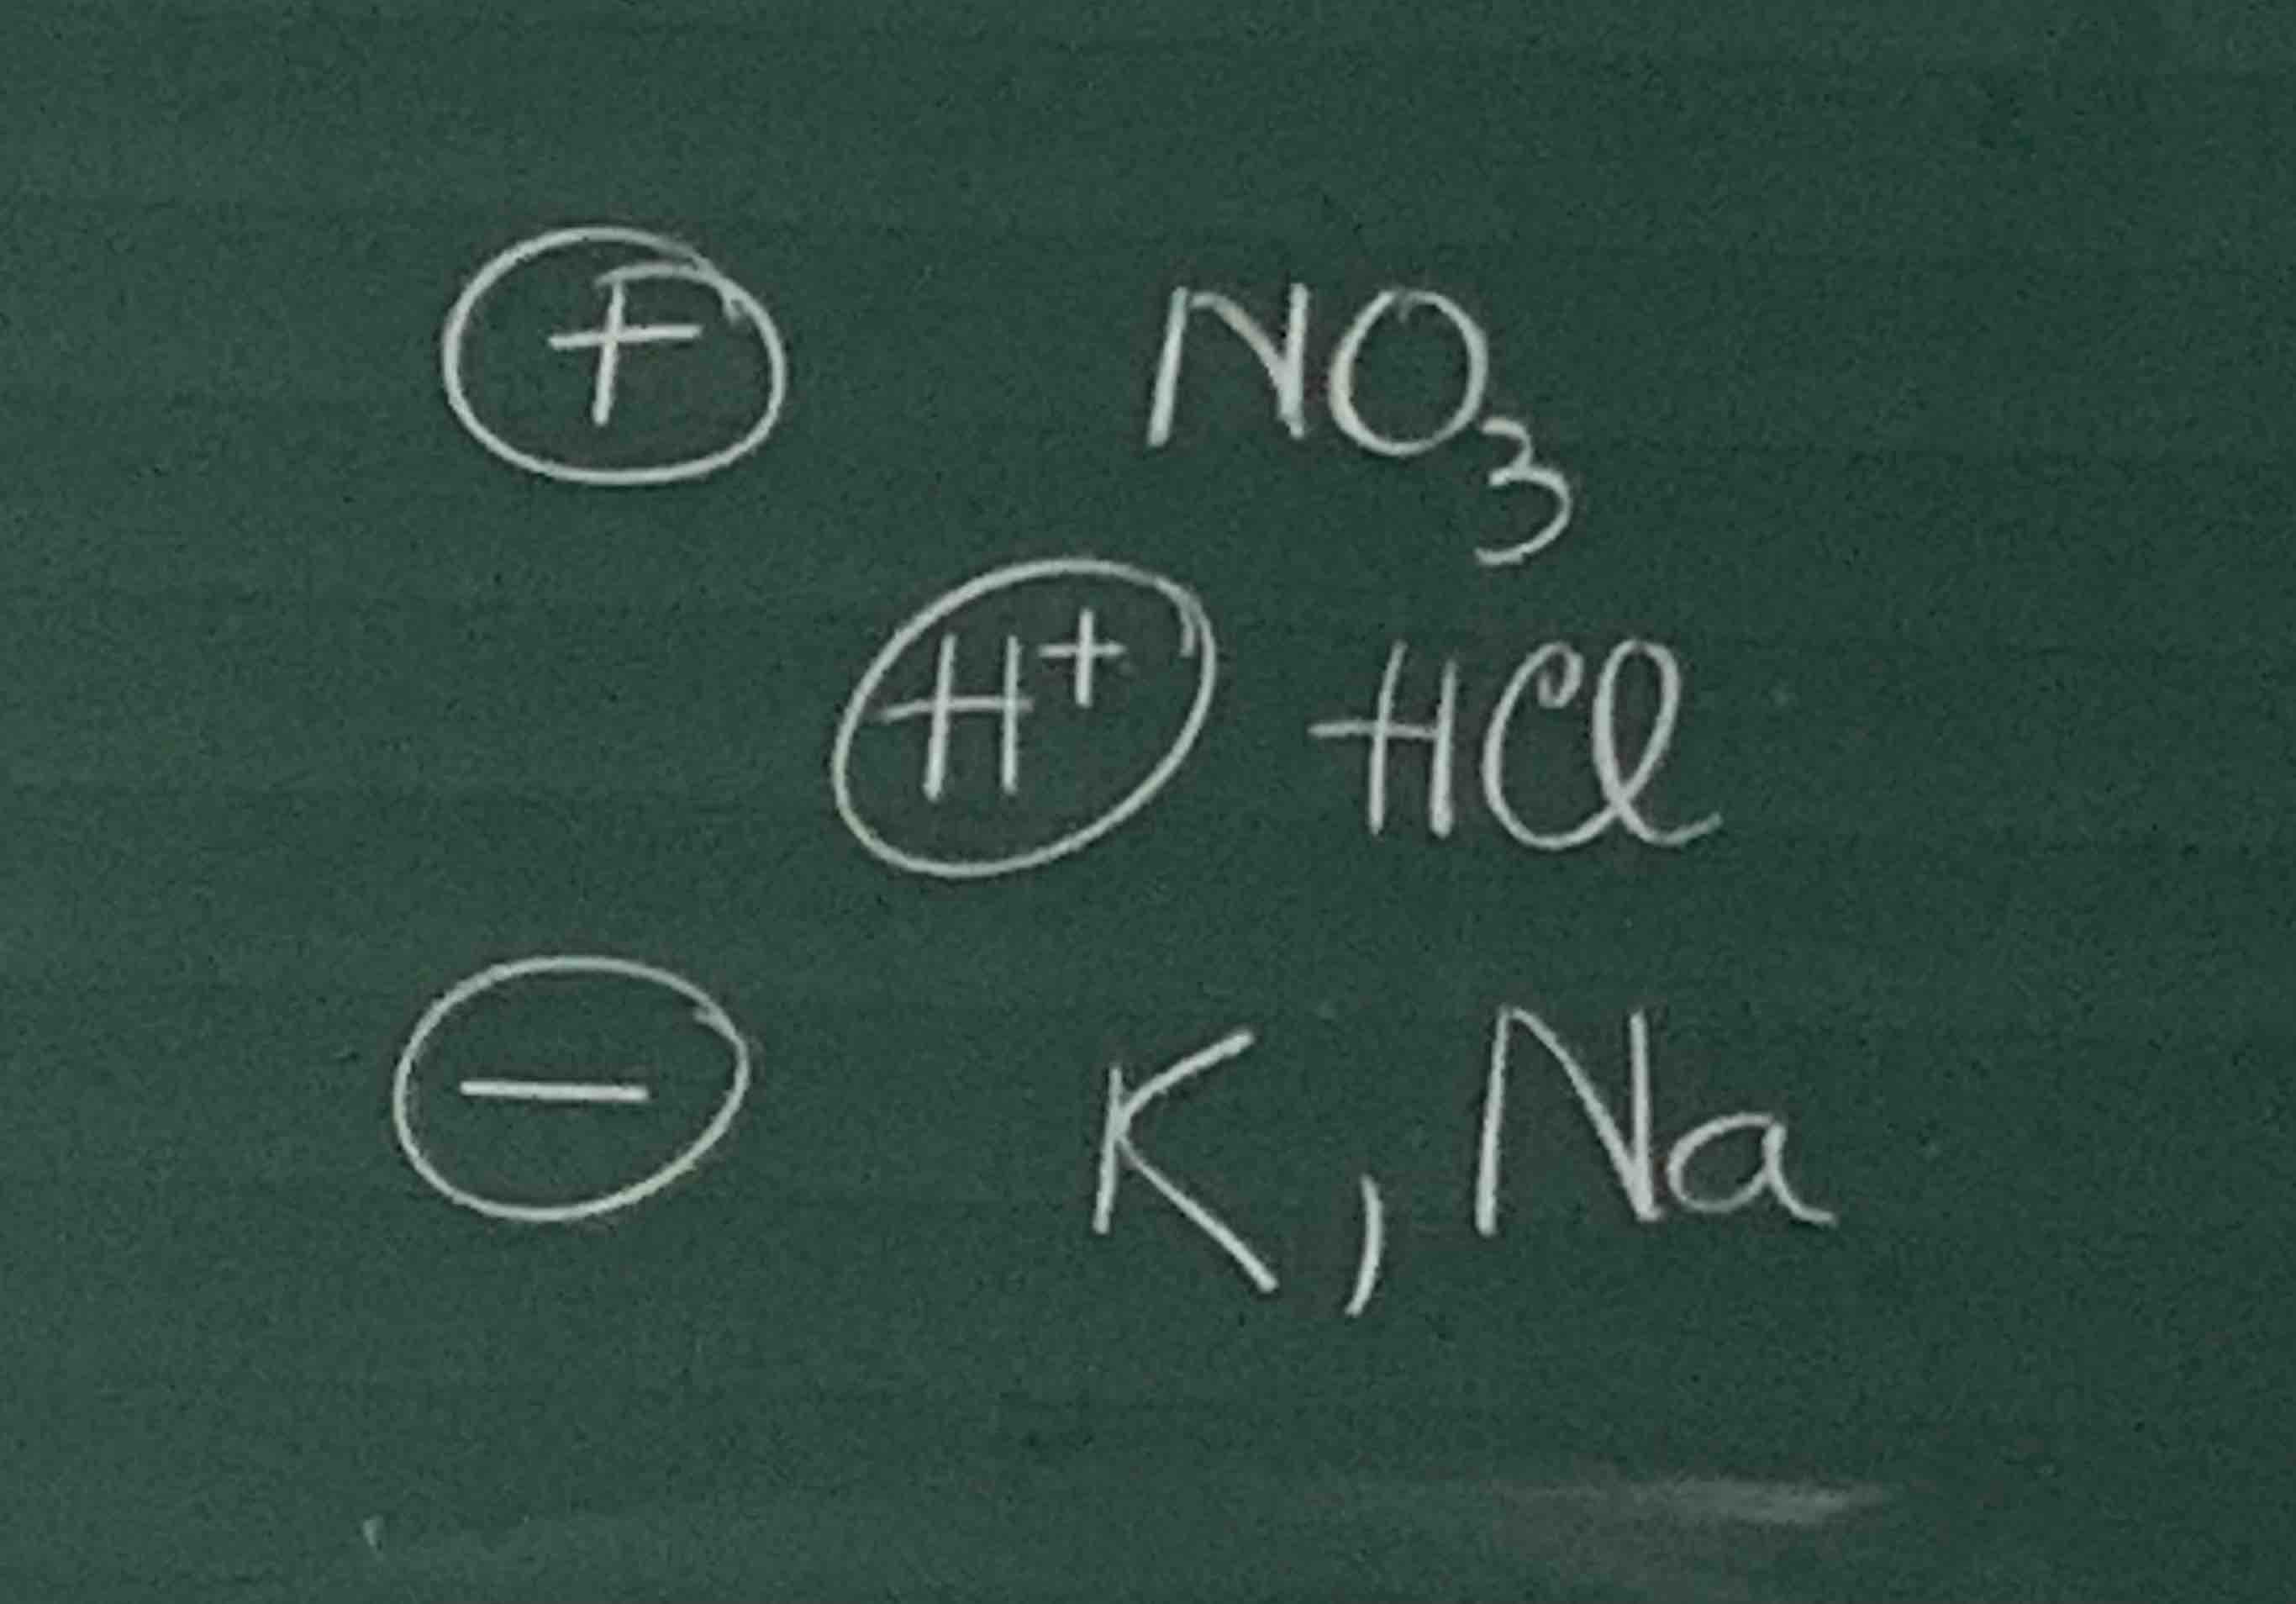 ⊕ NO₃
H⁺ HCl
⊖ K, Na